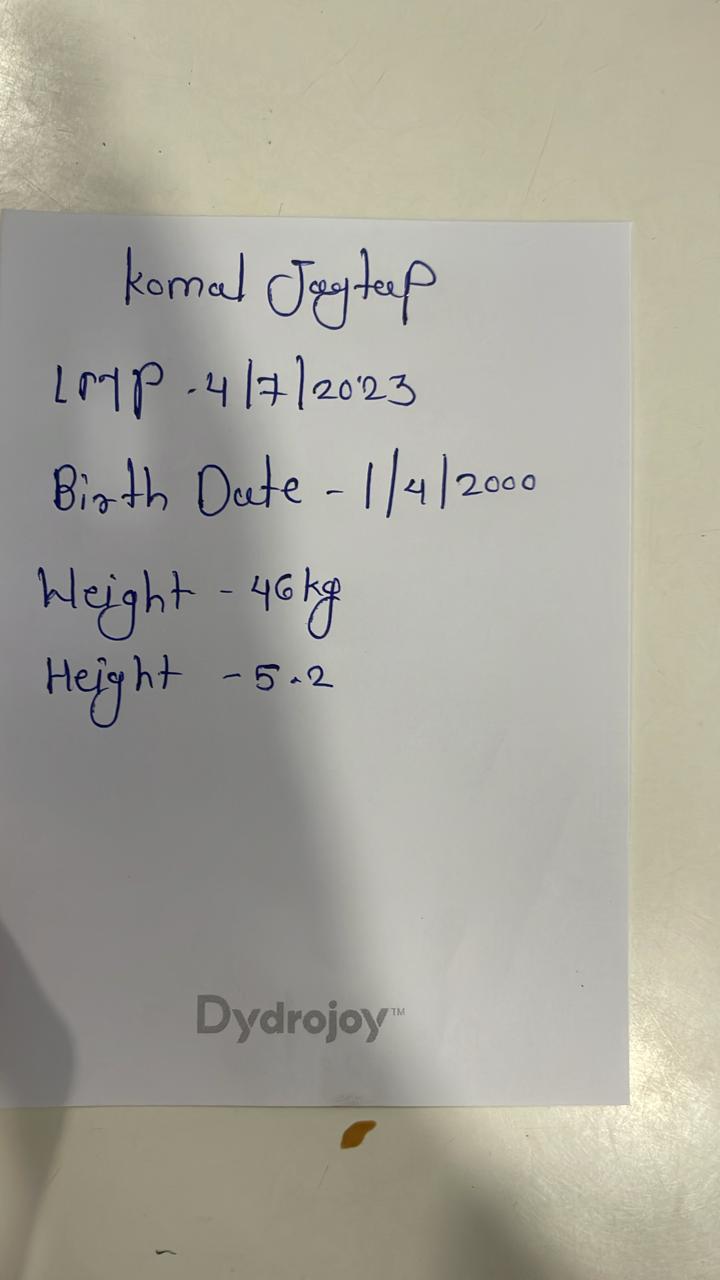 Komal Jagteep
LMP - 4/7/2023
Birth Date - 1/4/2000
Weight - 46kg
Height - 5.2
Dydrojoy™